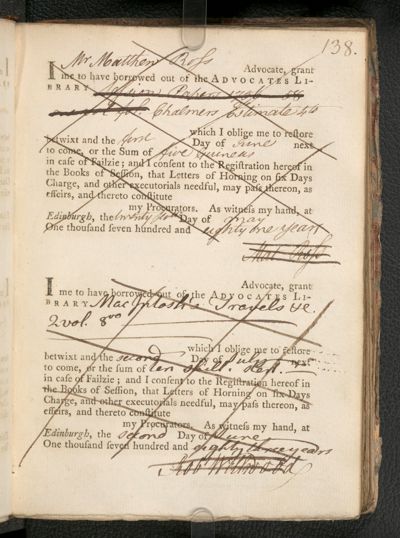 138.
I Mr Matthew Ross Advocate, grant
me to have borrowed out of the ADVOCATES LI-
BRARY
Chalmers Estimate 4to
which I oblige me to restore
betwixt and the first Day of June next
to come, or the Sum of five guineas
in case of Failzie; and I consent to the Registration hereof in
the Books of Session, that Letters of Horning on six Days
Charge, and other executorials needful, may pass thereon, as
effeirs, and thereto constitute
my Procurators. As witness my hand, at
Edinburgh, the twenty first Day of May
One thousand seven hundred and eighty one years
Mat. Ross
I Advocate, grant
me to have borrowed out of the ADVOCATES LI-
BRARY MacIntoshs Travels &c.
2 vol. 8vo
which I oblige me to restore
betwixt and the second Day of July next
to come, or the sum of ten shill. ster.
in case of Failzie; and I consent to the Registration hereof in
the Books of Session, that Letters of Horning on six Days
Charge, and other executorials needful, may pass thereon, as
effeirs, and thereto constitute
my Procurators. As witness my hand, at
Edinburgh, the second Day of June
One thousand seven hundred and eighty three years